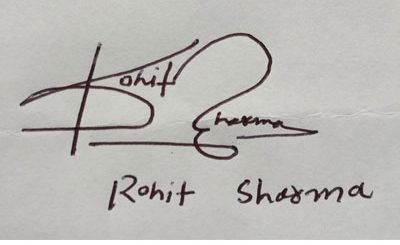 Rohit Sharma
Rohit Sharma